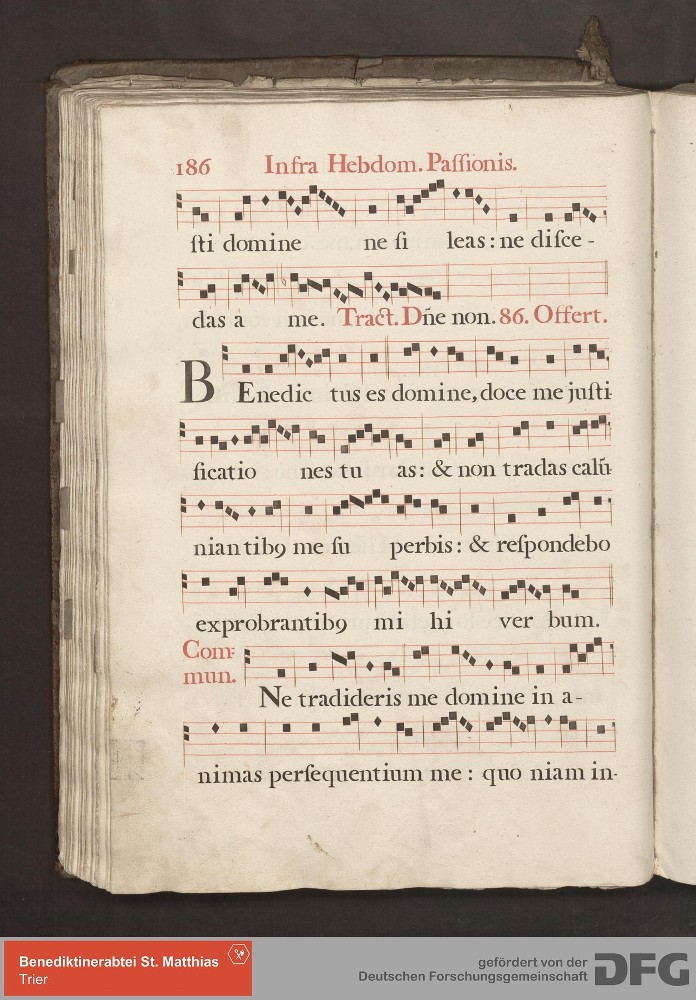 186 Infra Hebdom. Paſſionis.
ſti domine ne ſi leas: ne diſce-
das à me. Tract. Dñe non. 86. Offert.
BEnedic tus es domine, doce me juſti-
ficatio nes tu as: & non tradas calũ-
niantibꝰ me ſu perbis: & reſpondebo
exprobrantibꝰ mi hi ver bum.
Com-
mun.
Ne tradideris me domine in a-
nimas perſequentium me: quoniam in-
Benediktinerabtei St. Matthias
Trier
gefördert von der
Deutschen Forschungsgemeinschaft
DFG